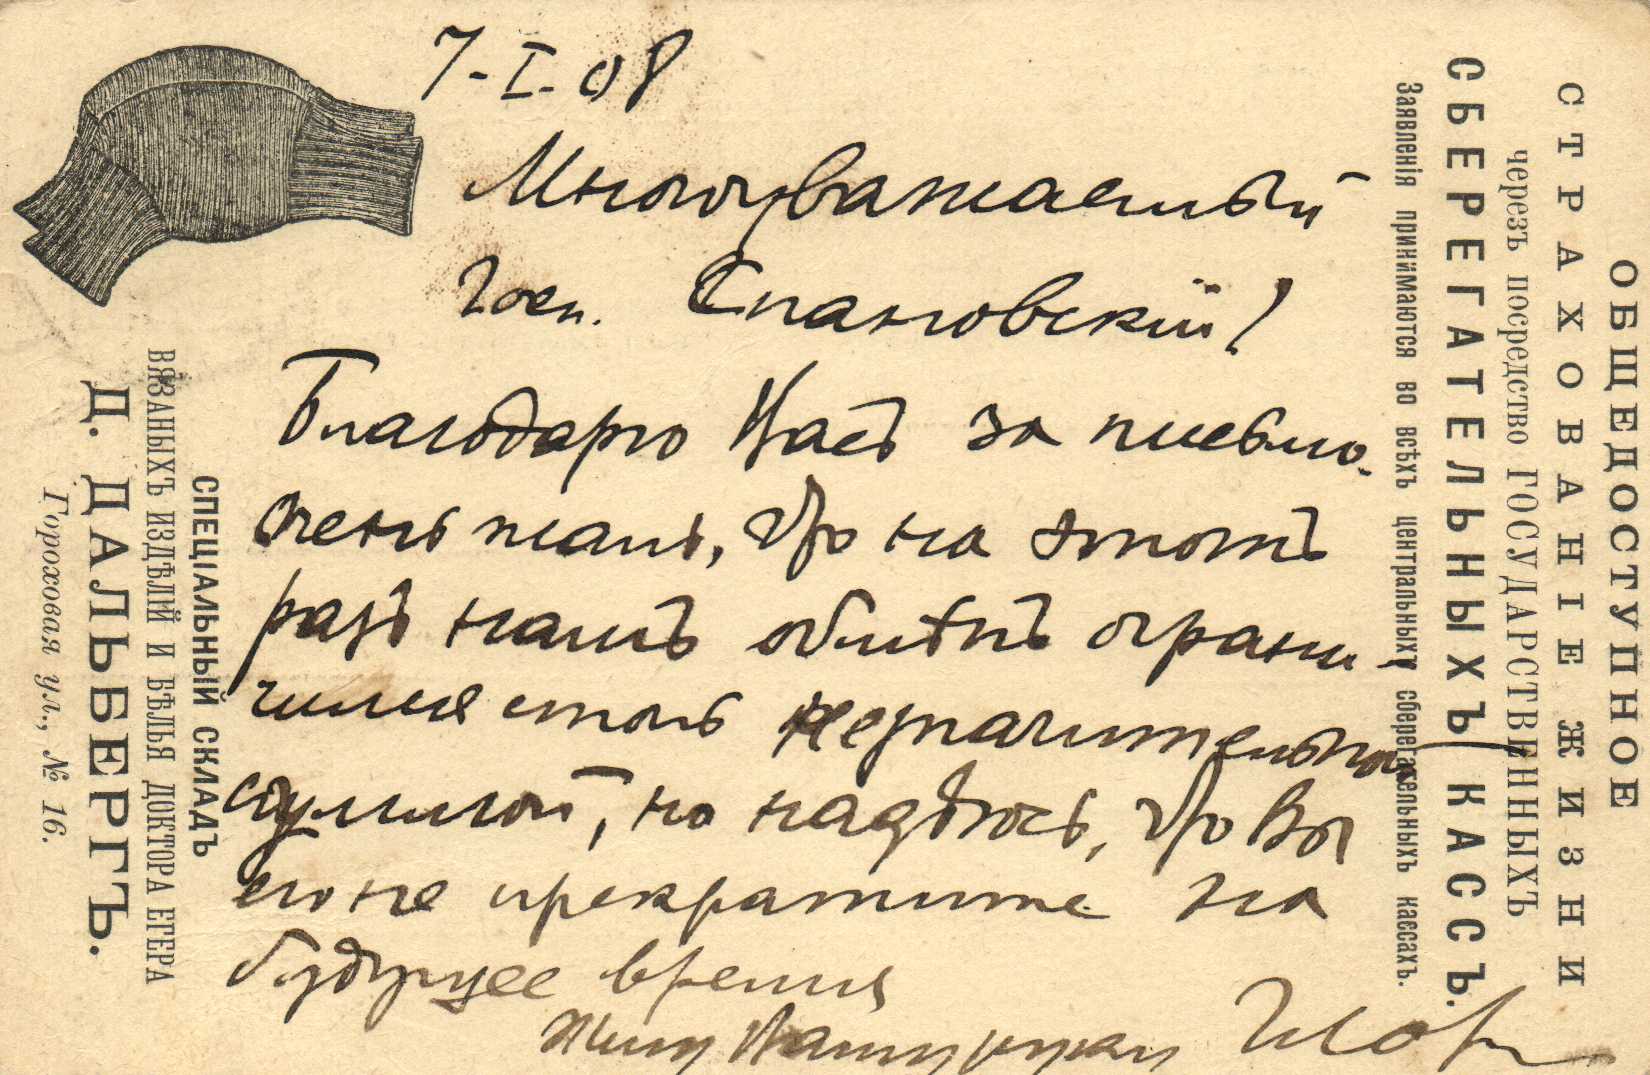 7-I-08
Многоуважаемый
Госп. Спановскій!
Благодарю Васъ за письмо.
Очень жаль, что на этотъ
разъ нашъ обмѣнъ ограни-
чился столь незначительной
суммой, но надѣюсь, что Вы
его не прекратите на
будущее время
Жму Вашу руку
ОБЩЕДОСТУПНОЕ
СТРАХОВАНІЕ ЖИЗНИ
черезъ посредство ГОСУДАРСТВЕННЫХЪ
СБЕРЕГАТЕЛЬНЫХЪ КАССЪ.
Заявленія принимаются во всѣхъ центральныхъ сберегательныхъ кассахъ.
СПЕЦІАЛЬНЫЙ СКЛАДЪ
ВЯЗАНЫХЪ ИЗДѢЛІЙ И БѢЛЬЯ ДОКТОРА ЕГЕРА
Д. ДАЛЬБЕРГЪ.
Гороховая ул., № 16.